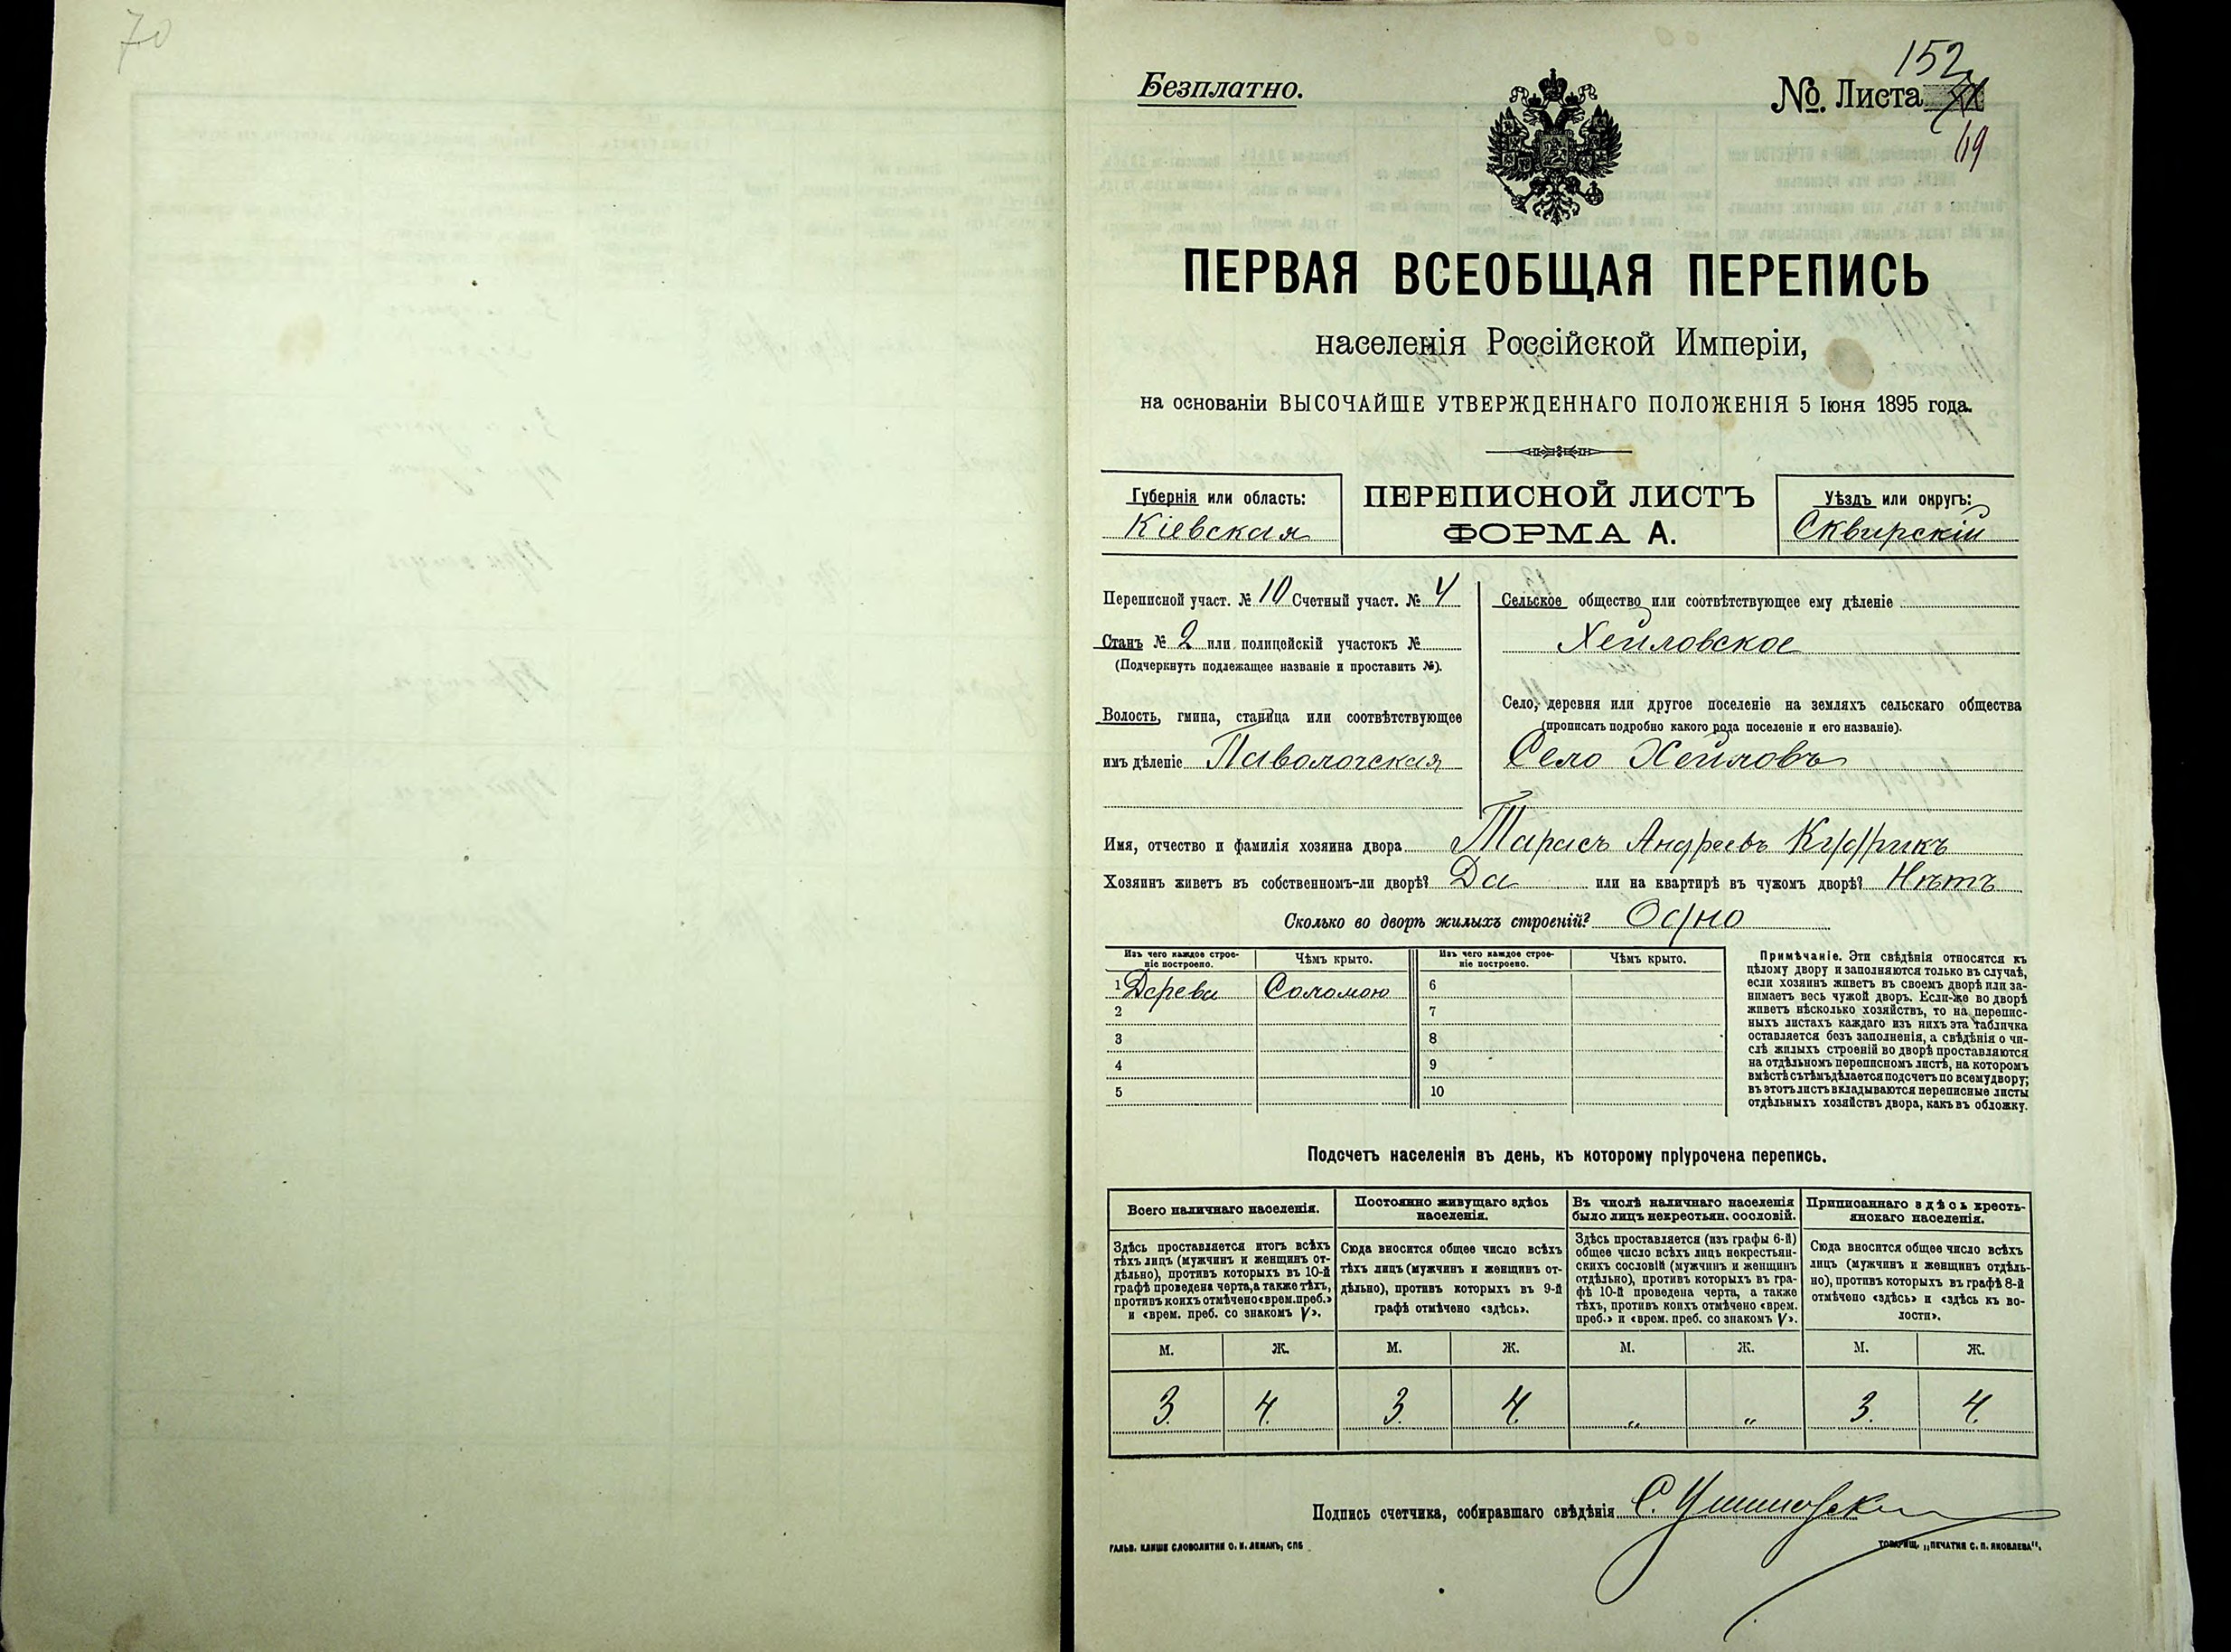 70
Безплатно.
152
№. Листа
69
ПЕРВАЯ ВСЕОБЩАЯ ПЕРЕПИСЬ
населенія Россійской Имперіи,
на основаніи ВЫСОЧАЙШЕ УТВЕРЖДЕННАГО ПОЛОЖЕНІЯ 5 Іюня 1895 года.
Губернія или область:
Кіевская
ПЕРЕПИСНОЙ ЛИСТЪ
ФОРМА А.
Уѣздъ или округъ:
Сквирскій
Переписной участ. № 10 Счетный участ. № 4
Станъ № 2 или полицейскій участокъ №
(Подчеркнуть подлежащее названіе и проставить №).
Волость, гмина, станица или соотвѣтствующее
имъ дѣленіе Паволочская
Сельское общество или соотвѣтствующее ему дѣленіе
Хейловское
Село, деревня или другое поселеніе на земляхъ сельскаго общества
(прописать подробно какого рода поселеніе и его названіе).
Село Хейловъ
Имя, отчество и фамилія хозяина двора Тарасъ Андреевъ
Хозяинъ живетъ въ собственномъ-ли дворѣ? Да или на квартирѣ въ чужомъ дворѣ? Нѣтъ
Сколько во дворѣ жилыхъ строеній? Одно
Изъ чего каждое строе-
ніе построено.
Чѣмъ крыто.
Изъ чего каждое строе-
ніе построено.
Чѣмъ крыто.
1 Дерева Соломою 6
2 7
3 8
4 9
5 10
Примѣчаніе. Эти свѣдѣнія относятся къ
цѣлому двору и заполняются только въ случаѣ,
если хозяинъ живетъ въ своемъ дворѣ или за-
нимаетъ весь чужой дворъ. Если-же во дворѣ
живетъ нѣсколько хозяйствъ, то на перепис-
ныхъ листахъ каждаго изъ нихъ эта табличка
оставляется безъ заполненія, а свѣдѣнія о чи-
слѣ жилыхъ строеній во дворѣ проставляются
на отдѣльномъ переписномъ листѣ, на которомъ
вмѣстѣ съ тѣмъ дѣлается подсчетъ по всему двору;
въ этотъ листъ вкладываются переписные листы
отдѣльныхъ хозяйствъ двора, какъ въ обложку.
Подсчетъ населенія въ день, къ которому пріурочена перепись.
Всего наличнаго населенія.
Здѣсь проставляется итогъ всѣхъ
тѣхъ лицъ (мужчинъ и женщинъ от-
дѣльно), противъ которыхъ въ 10-й
графѣ проведена черта, а также тѣхъ,
противъ коихъ отмѣчено «врем. преб.»
и «врем. преб. со знакомъ V».
Постоянно живущаго здѣсь
населенія.
Сюда вносится общее число всѣхъ
тѣхъ лицъ (мужчинъ и женщинъ от-
дѣльно), противъ которыхъ въ 9-й
графѣ отмѣчено «здѣсь».
Въ числѣ наличнаго населенія
было лицъ некрестьян. сословій.
Здѣсь проставляется (изъ графы 6-й)
общее число всѣхъ лицъ некрестьян-
скихъ сословій (мужчинъ и женщинъ
отдѣльно), противъ которыхъ въ гра-
фѣ 10-й проведена черта, а также
тѣхъ, противъ коихъ отмѣчено «врем.
преб.» и «врем. преб. со знакомъ V».
Приписаннаго здѣсь кресть-
янскаго населенія.
Сюда вносится общее число всѣхъ
лицъ (мужчинъ и женщинъ отдѣль-
но), противъ которыхъ въ графѣ 8-й
отмѣчено «здѣсь» и «здѣсь къ во-
лости».
М. Ж. М. Ж. М. Ж. М. Ж.
3. 4. 3. 4. " " 3. 4.
Подпись счетчика, собиравшаго свѣдѣнія С.
ГАЛЬВ. КЛИШЕ СЛОВОЛИТНИ О. И. ЛЕМАНЪ, СПБ
ТОВАРИЩ. „ПЕЧАТНЯ С. П. ЯКОВЛЕВА".